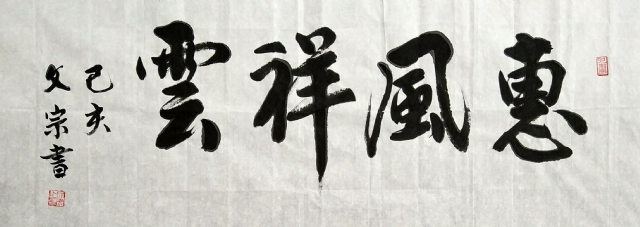 惠風祥雲
己亥
文宗書